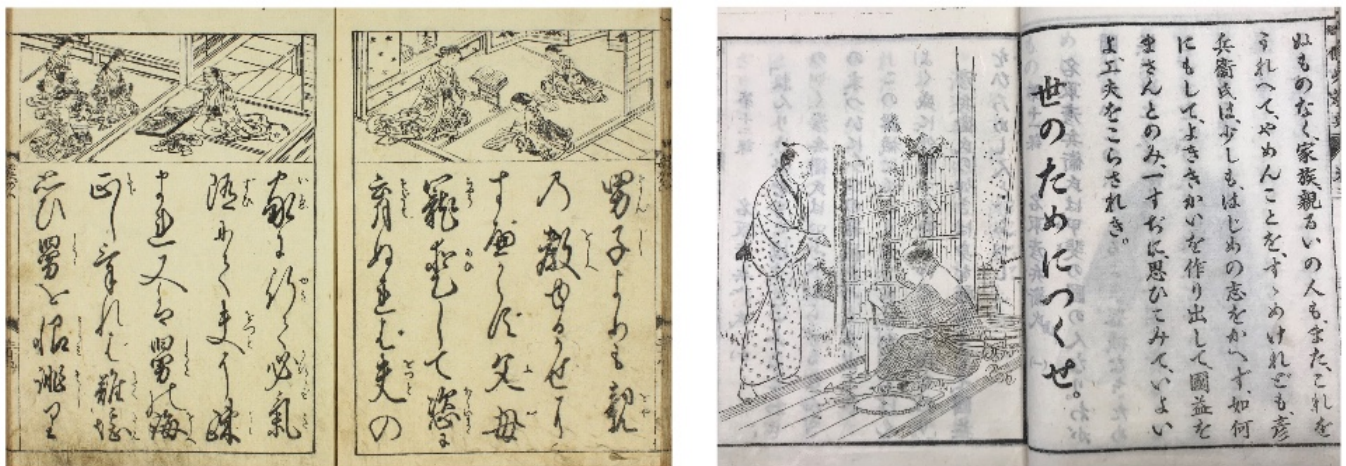 男子よりも親
乃教ゆるかせに
すへからす父母
寵愛して恣に
育ぬれは夫の
家に行て必氣
随にて夫に疎
まれ又は舅の誨
正しけれは難堪
思ひ舅を恨誹り
ぬものなく、家族親るいの人もまた、これを
うれへて、やめんことを、すゝめけれども、彦
兵衞氏は、少しも、はじめの志をかへず、如何
にもして、よききかいを作り出して、國益を
まさんとのみ、一すぢに思ひこみて、いよい
よ、工夫をこらされき。
世のためにつくせ。